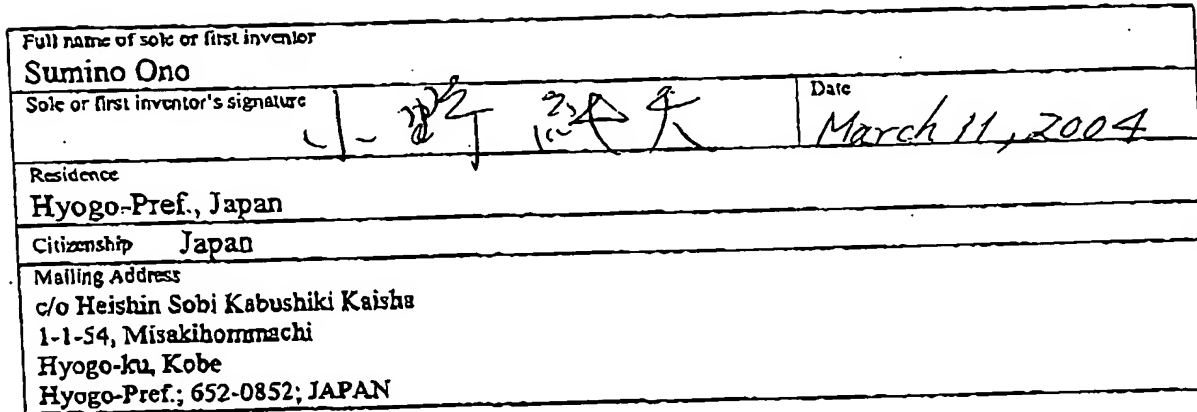 Full name of sole or first inventor
Sumino Ono
Sole or first inventor's signature 小野 Date
March 11, 2004
Residence
Hyogo-Pref., Japan
Citizenship Japan
Mailing Address
c/o Heishin Sobi Kabushiki Kaisha
1-1-54, Misakihommachi
Hyogo-ku, Kobe
Hyogo-Pref.; 652-0852; JAPAN